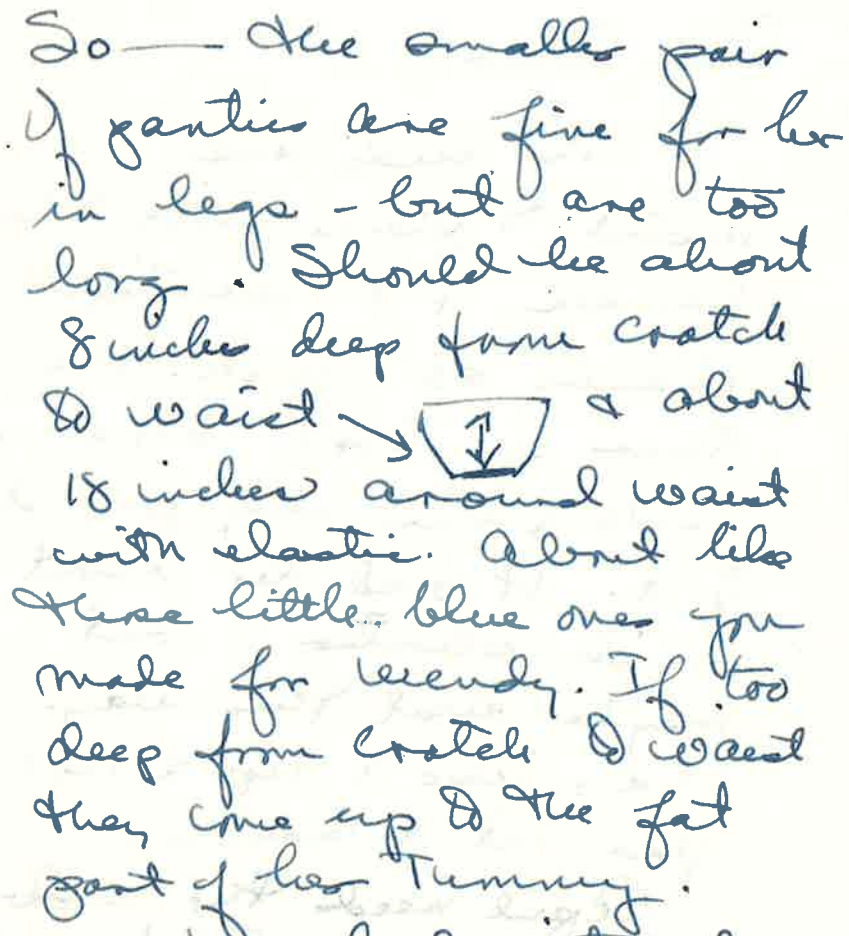 So — the smaller pair
of panties are fine for her
in legs - but are too
long. Should be about
8 inches deep from crotch
to waist → & about
18 inches around waist
with elastic. About like
those little blue ones you
made for Wendy. If too
deep from crotch to waist
they come up to the fat
part of her Tummy.